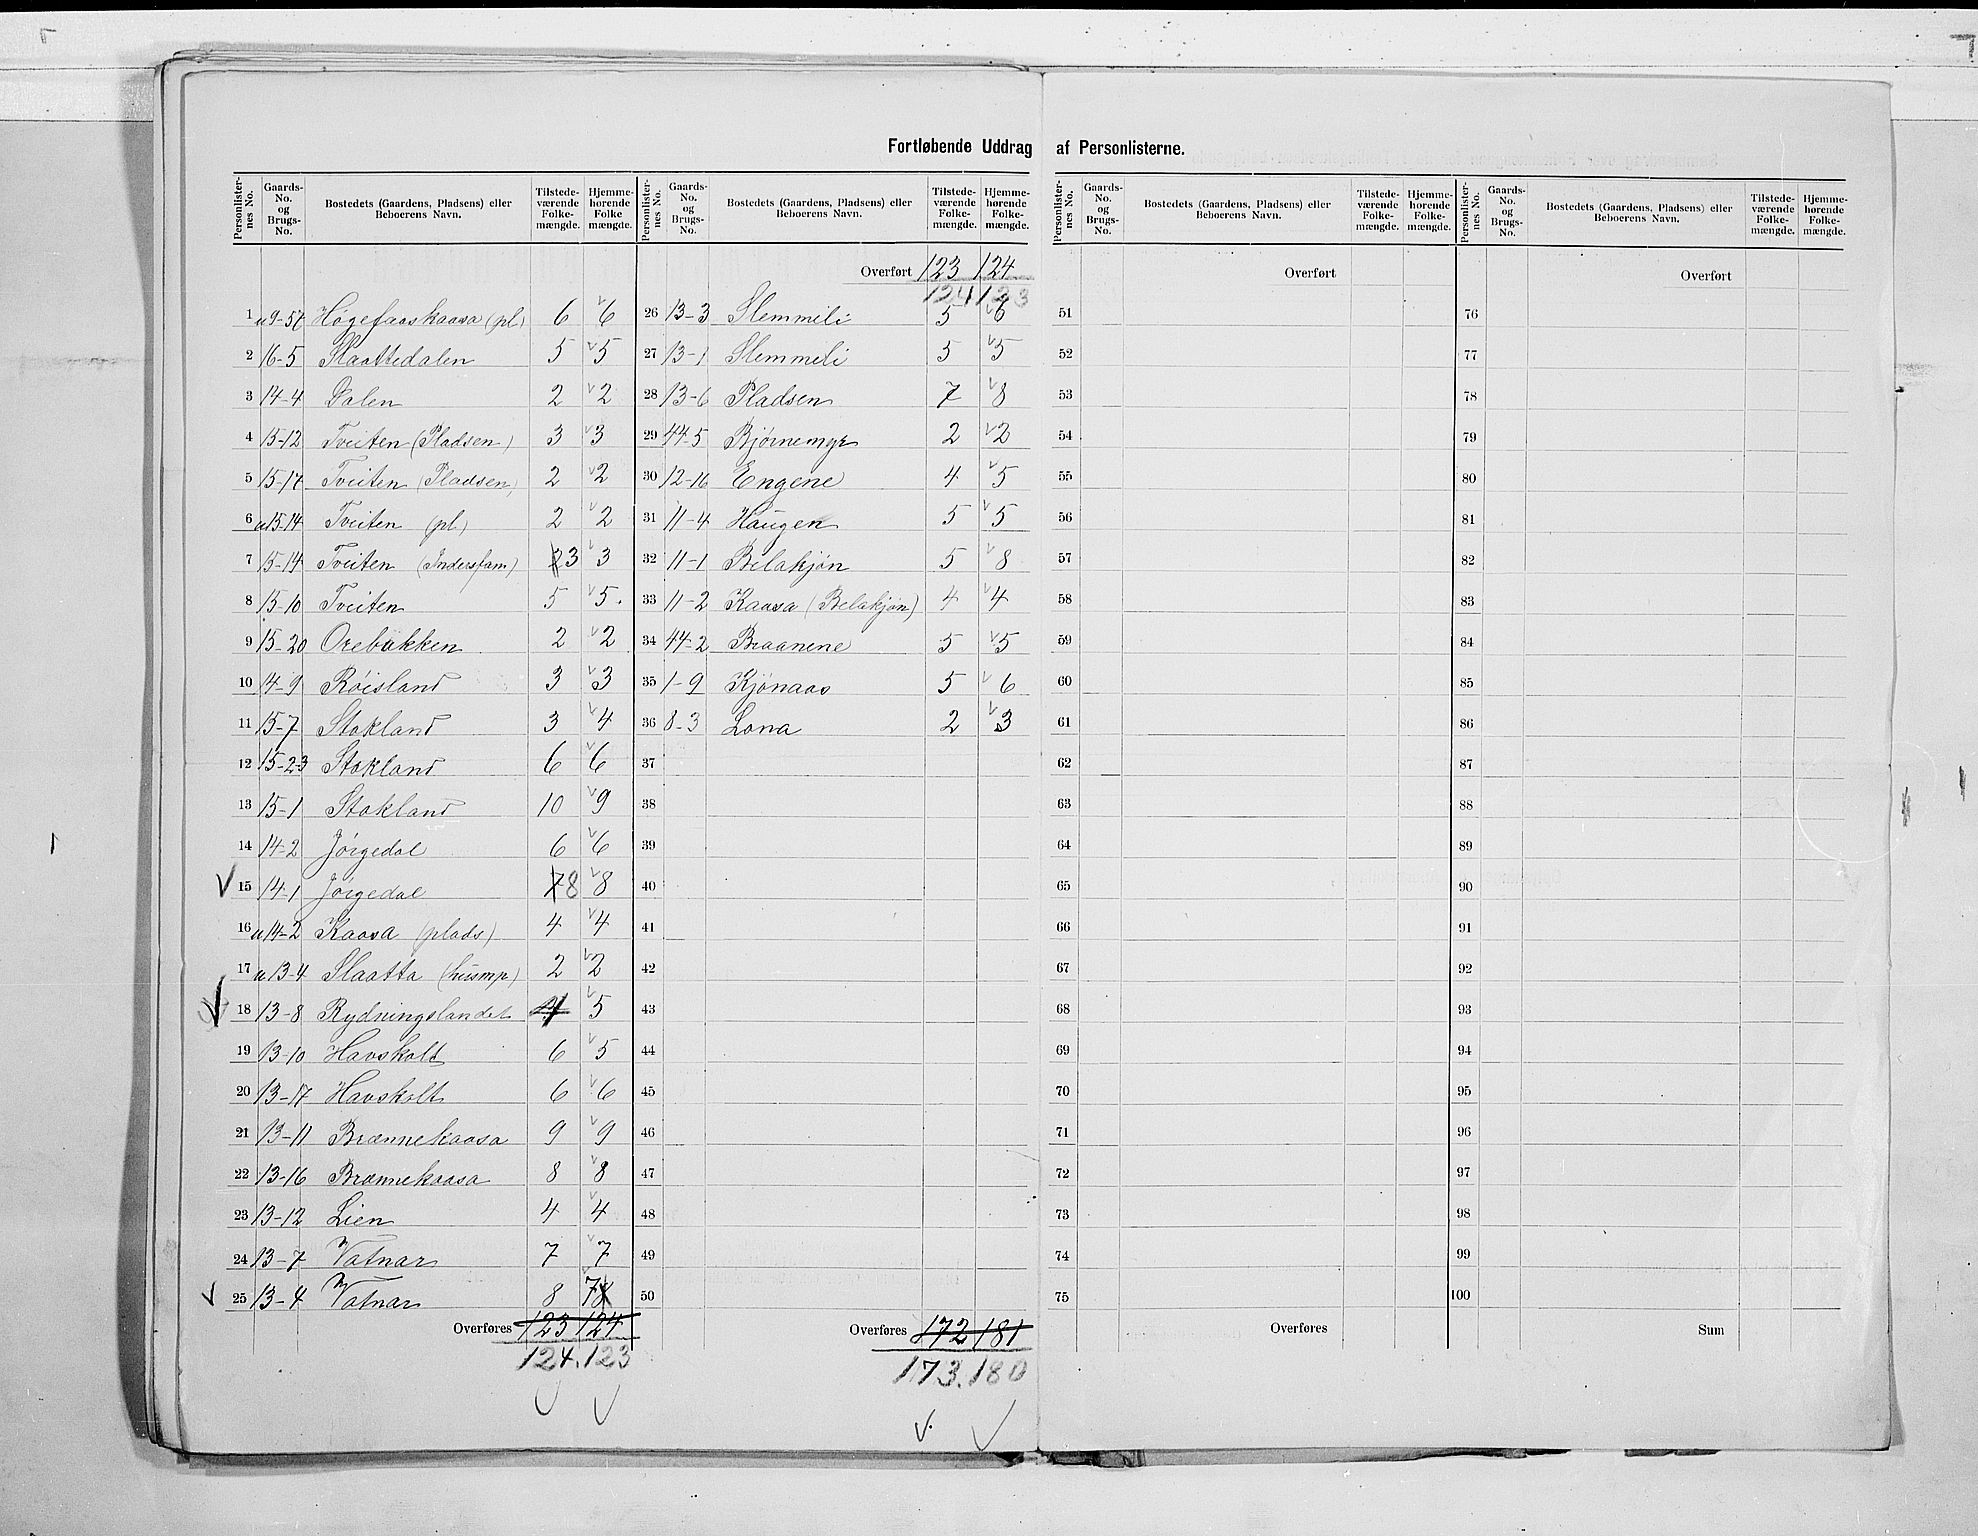 Fortløbende Uddrag af Personlisternes.
Personlister-nes No. Gaards-No. og Brugs-No. Bostedets (Gaardens, Pladsens) eller Beboerens Navn. Tilstede-værende Folke-mængde. Hjemme-hørende Folke mængde.
1 u 9-57 Høgefaoskaasa (pl) 6 6
2 16-5 Slaattedalen 5 5
3 14-4 Dalen 2 2
4 15-12 Tveiten (Pladsen) 3 3
5 15-17 Tveiten (Pladsen) 2 2
6 u 15-14 Tveiten (pl) 2 2
7 15-14 Tveiten (Inderstfam) 23 3
8 15-10 Tveiten 5 5.
9 15-20 Orebakken 2 2
10 14-9 Röisland 3 3
11 15-7 Stokland 3 4
12 15-23 Stokland 6 6
13 15-1 Stokland 10 9
14 14-2 Jörgedal 6 6
15 14-1 Jörgedal 78 8
16 u 14-2 Kaasa (plads) 4 4
17 u 13-4 Slaatta (husmp) 2 2
18 13-8 Rydningslandet 4 5
19 13-10 Havskolt 6 5
20 13-17 Havskolt 6 6
21 13-11 Brænnekaasa 9 9
22 13-16 Brænnekaasa 8 8
23 13-12 Lien 4 4
24 13-7 Vatnar 7 7
25 13-4 Vatnar 8 78
Overføres 123 124
124. 123
Personlister-nes No. Gaards-No. og Brugs-No. Bostedets (Gaardens, Pladsens) eller Beboerens Navn. Tilstede-værende Folke-mængde. Hjemme-hørende Folke-mængde.
Overført 123 124
124 123
26 13-3 Slemmeli 5 6
27 13-1 Slemmeli 5 5
28 13-6 Pladsen 7 8
29 44-5 Bjørnemyr 2 2
30 12-16 Engene 4 5
31 11-4 Haugen 5 5
32 11-1 Belakjön 5 8
33 11-2 Kaasa (Belakjön) 4 4
34 44-2 Braanene 5 5
35 1-9 Kjönaas 5 6
36 8-3 Lona 2 3
37
38
39
40
41
42
43
44
45
46
47
48
49
50
Overføres 172 181
173. 180
Personlister-nes No. Gaards-No. og Brugs-No. Bostedets (Gaardens, Pladsens) eller Beboerens Navn. Tilstede-værende Folke-mængde. Hjemme-hørende Folke-mængde.
Overført
51
52
53
54
55
56
57
58
59
60
61
62
63
64
65
66
67
68
69
70
71
72
73
74
75
Overføres
Personlister-nes No. Gaards-No. og Brugs-No. Bostedets (Gaardens, Pladsens) eller Beboerens Navn. Tilstede-værende Folke-mængde. Hjemme-hørende Folke-mængde.
Overført
76
77
78
79
80
81
82
83
84
85
86
87
88
89
90
91
92
93
94
95
96
97
98
99
100
Sum